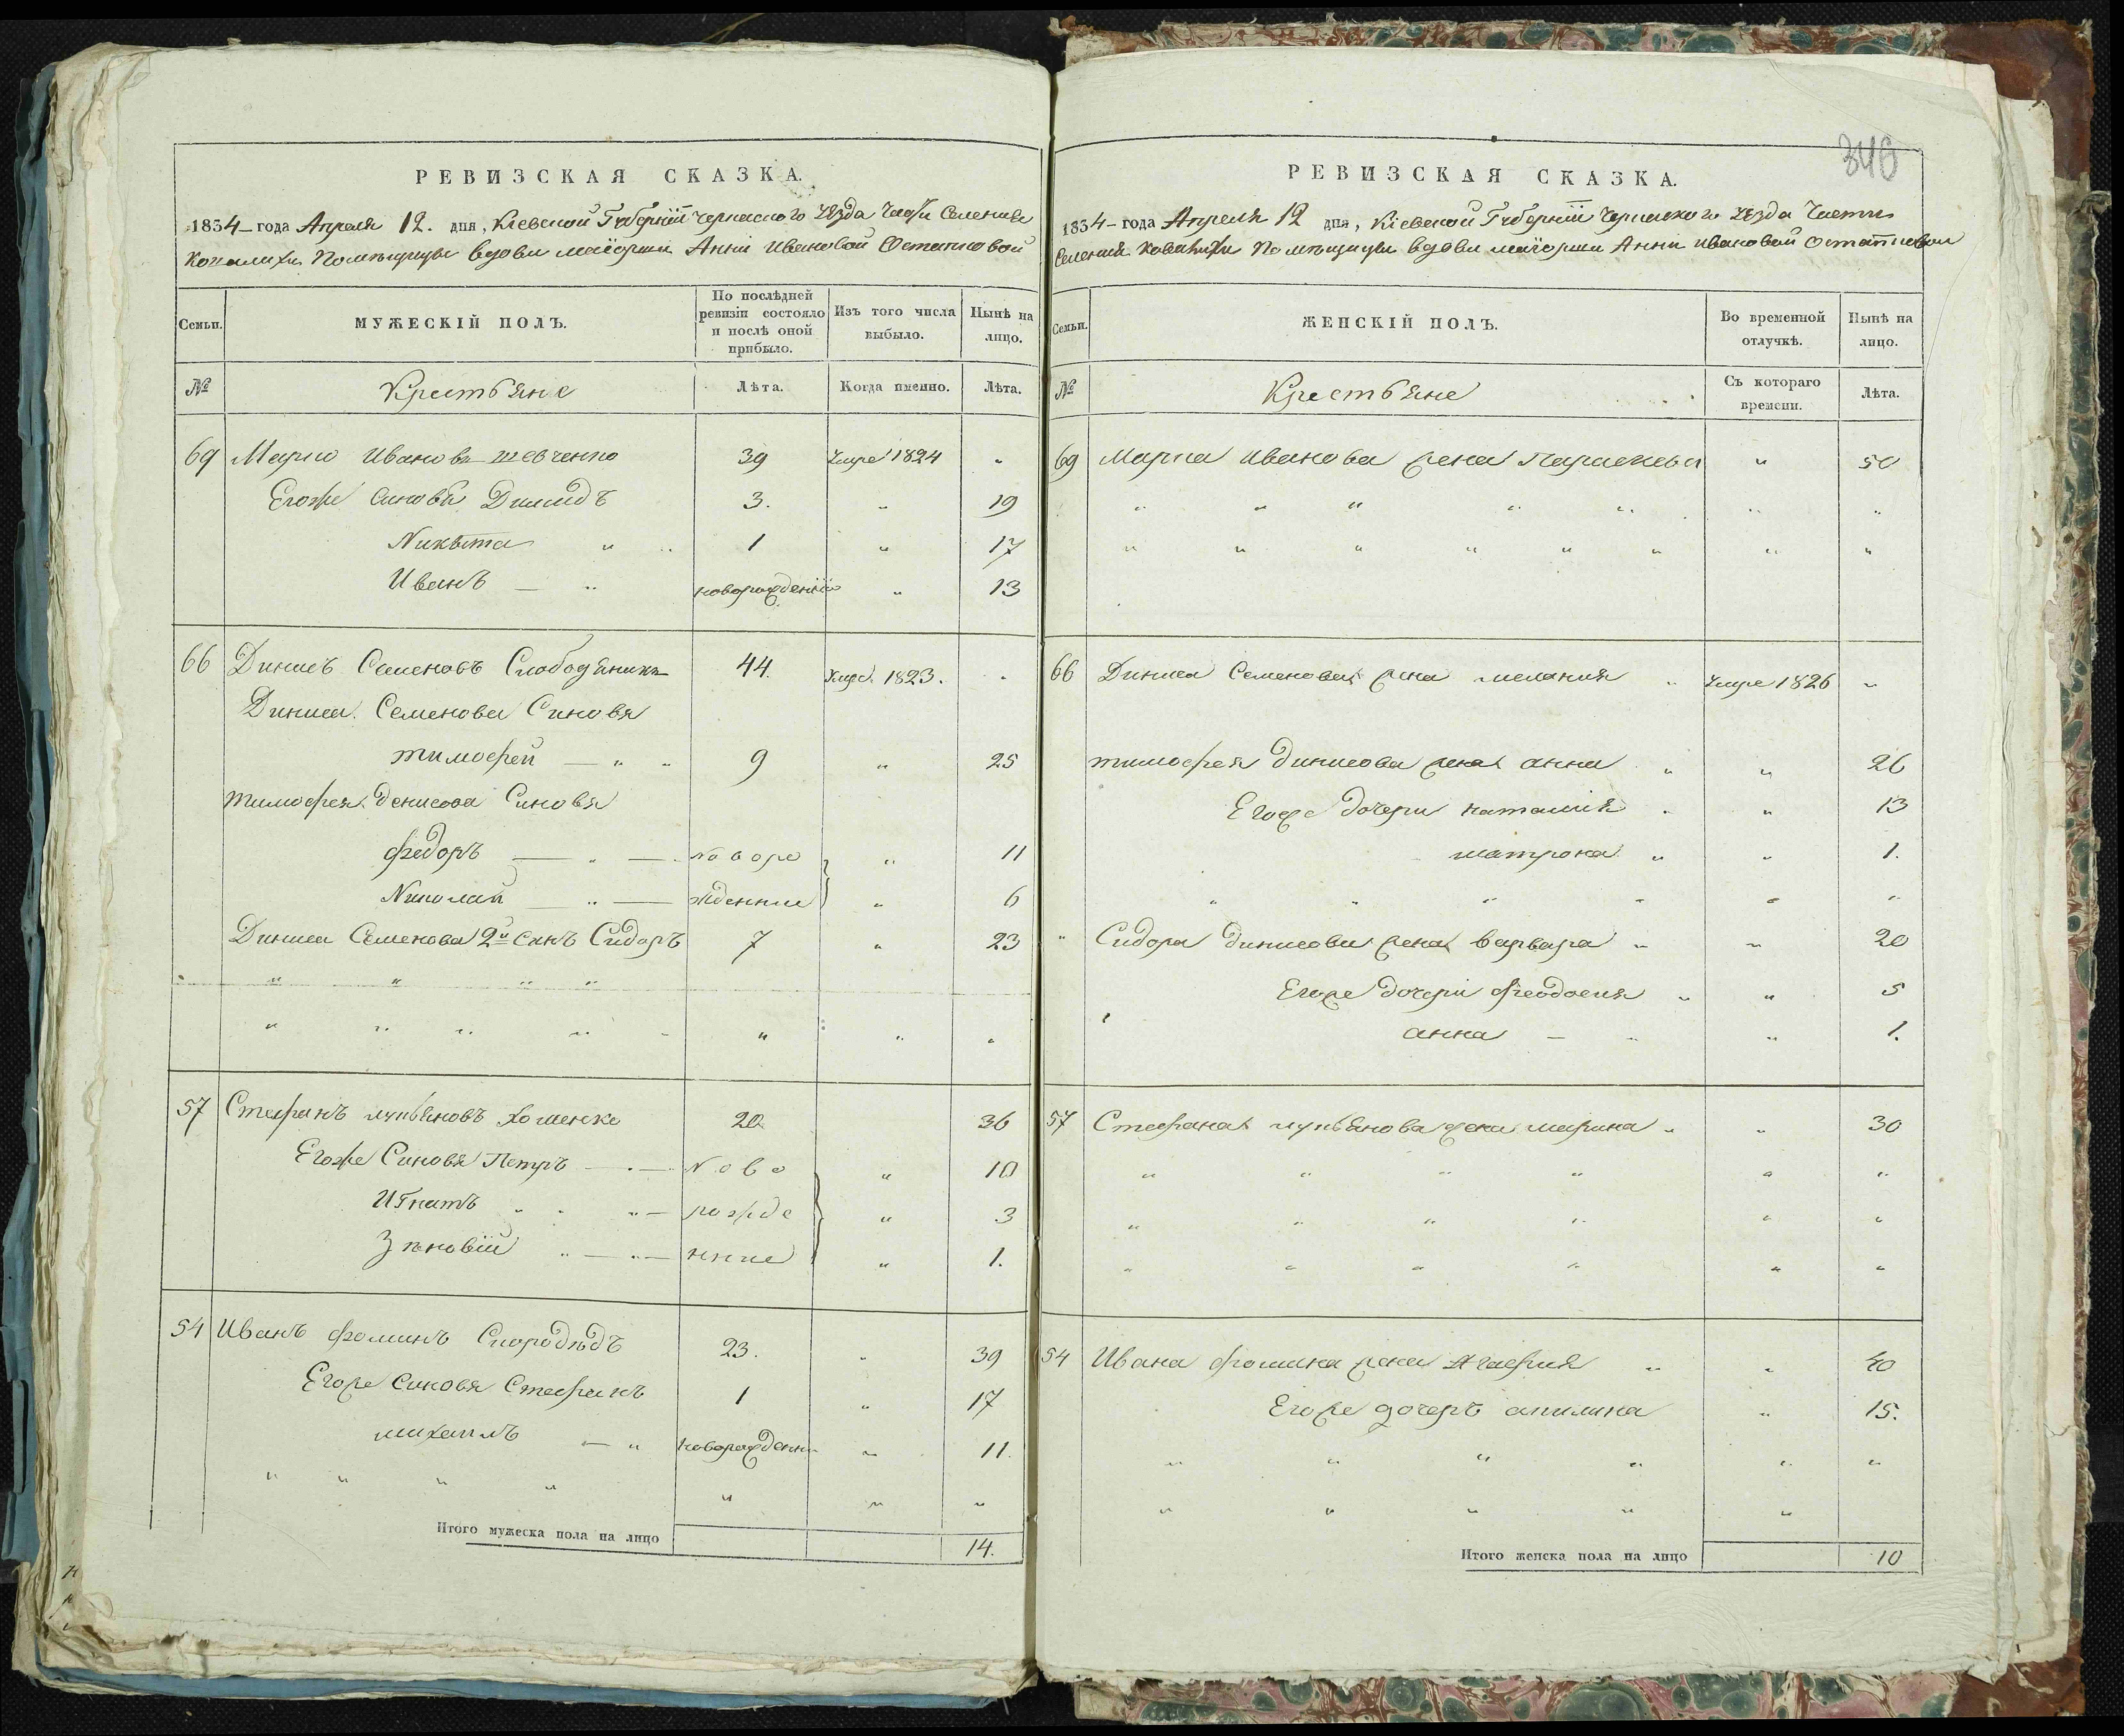 РЕВИЗСКАЯ СКАЗКА.
1834 года Апреля 12. дня, Кіевской Губерніи Черкаского Уезда Части Селения
Помещицы вдовы маіорши Анни Ивановой
Семьи. МУЖЕСКІЙ ПОЛЪ. По послѣдней ревизіи состояло и послѣ оной прибыло. Изъ того числа выбыло. Нынѣ на лицо.
№ Крестьяне Лѣта. Когда именно. Лѣта.
69 Иванов шевченко 39 Умре 1824 „
Егоже синовья 3. „ 19
Никита „ 1 „ 17
Иванъ — „ „ 13
66 Динисъ Семеновъ Слободяникъ 44. Умре 1823. „
Диниса Семенова Синовя
тимофей — „ „ 9 „ 25
тимофея денисова Синовя
федоръ — „ — Новоро „ 11
Николай — „ — жденние „ 6
Диниса Семенова 2й синъ Сидоръ 7 „ 23
„ „ „ „
„ „ „ „ „ „ „
57 Стефанъ лукьяновъ хоменко 20 36
Егоже Синовя Петръ — „ — Ново „ 10
Игнатъ „ „ „ — рожде „ 3
Зѣновій „ — „ — нние „ 1.
54 Иванъ фоминъ Скородѣдъ 23. „ 39
Егоже Синовя Стефанъ 1 „ 17
михаилъ — „ новорожденни „ 11.
„ „ „ „ „ „ „
Итого мужеска пола на лицо 14.
346
РЕВИЗСКАЯ СКАЗКА.
1834 года Апреля 12 дня, Кіевской Губерніи Черкаского Уезда Части
Селения Помещицы вдовы маіорши Анни Ивановой
Семьи. ЖЕНСКІЙ ПОЛЪ. Во временной отлучкѣ. Нынѣ на лицо.
№ Крестьяне Съ котораго времени. Лѣта.
69 Иванова жена Параскевья „ 50
„ „ „ „ „ „ „
„ „ „ „ „ „ „ „
66 Диниса Семенова жена мелания „ Умре 1826 „
тимофея динисова жена анна „ „ 26
Егоже дочери наталия „ „ 13
матрона „ „ 1.
„ „ „ „ „ „
„ Сидора динисова жена варвара „ „ 20
Егоже дочери феодосия „ „ 5
анна — „ „ 1.
57 Стефана лукьянова жена марина „ „ 30
„ „ „ „ „ „
„ „ „ „ „ „
„ „ „ „ „ „
54 Ивана фомина жена Агафия „ „ 40
Егоже дочеръ акилина „ 15.
„ „ „ „ „ „
„ „ „ „ „
Итого женска пола на лицо 10